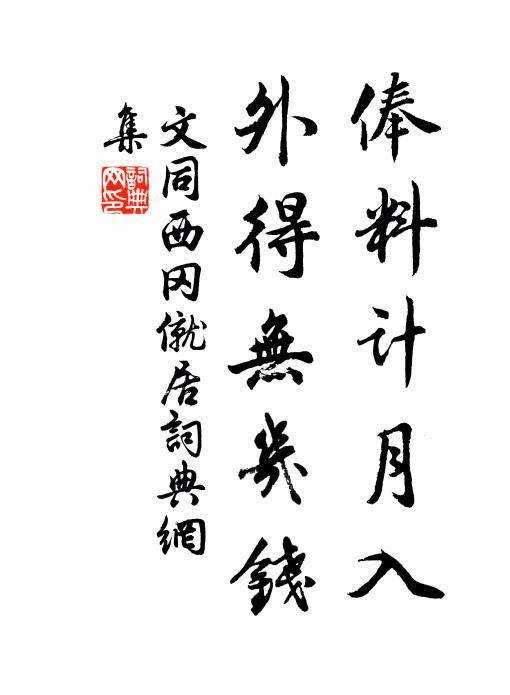 俸料計月入
外得無幾錢
文同西冈僦居詞典網
集
詞典
网印